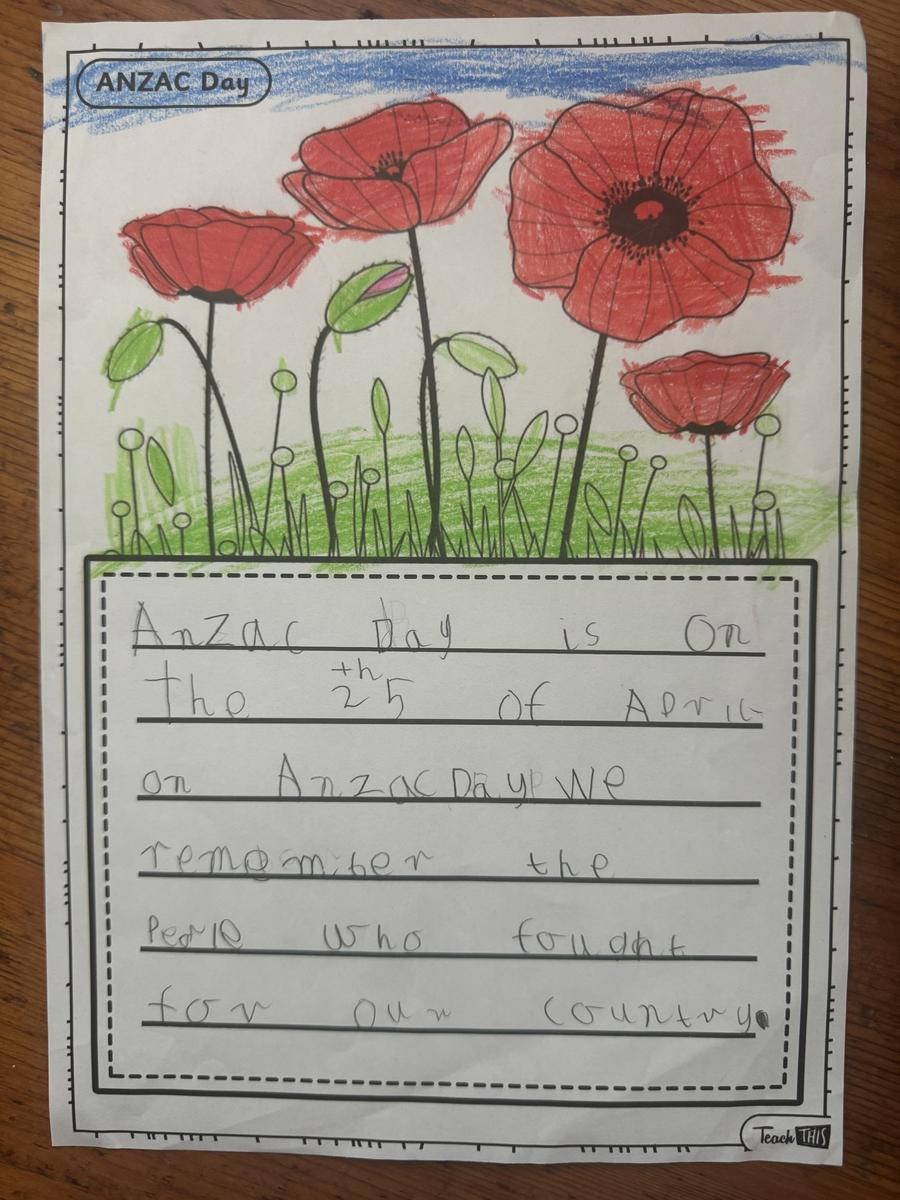 ANZAC Day
Anzac Day is on
the 25th of April
on Anzac Day we
remember the
People who fought
for our country.
Teach THIS